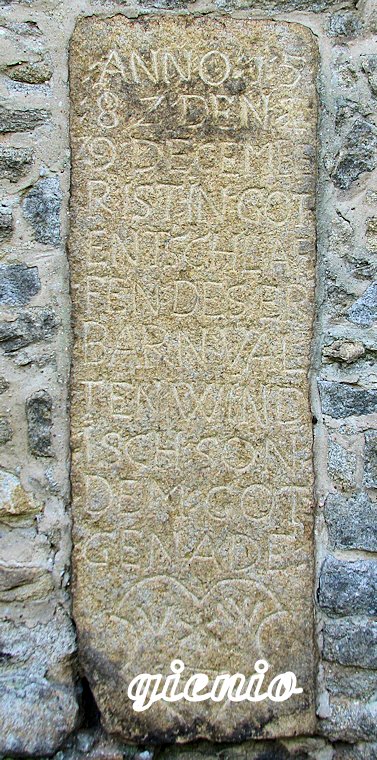 ANNO 15
8Z DEN Z
9 DECEMB
R IST IN GOT
ENTSCHLAF
FEN DES ER
BARN VAL
TEN WIND
ISCH SON
DEM GOT
GENADE
qicnio